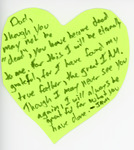 Dad,
Though you
may not be
"dead", you have become dead
to me. For this I will be eternally
grateful, for I have found my
true father, the great I AM.
Though I may never see you
again, I will always be
grateful for what you
have done. -Sam